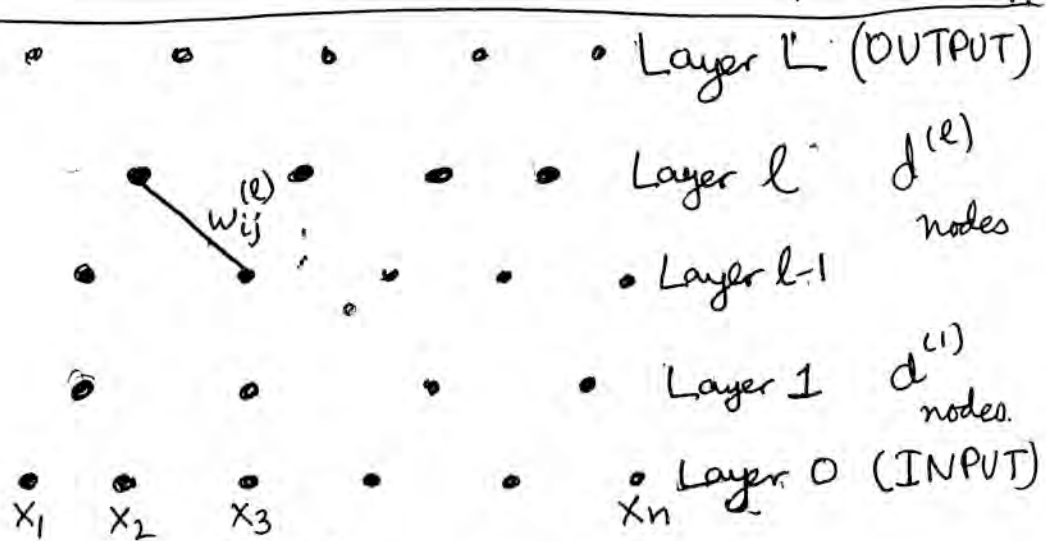 Layer L (OUTPUT)
Layer l d^(l) nodes
w_ij^(l)
Layer l-1
Layer 1 d^(1) nodes.
Layer 0 (INPUT)
x₁ x₂ x₃ xn